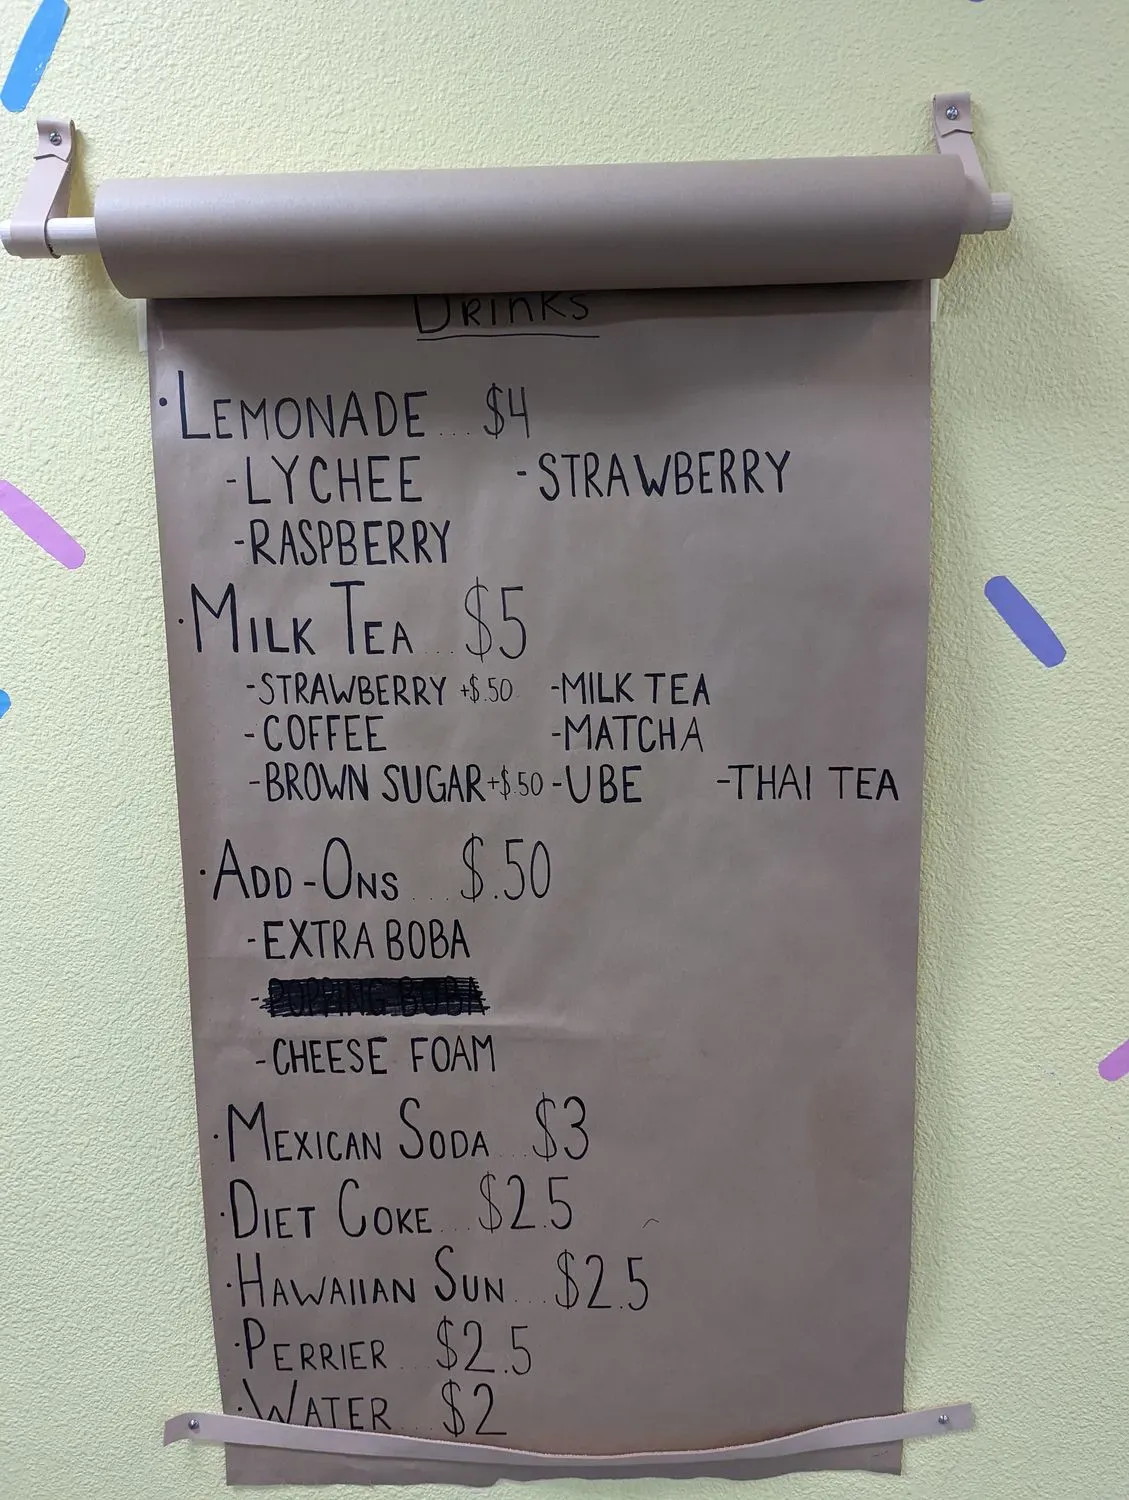 DRINKS
·LEMONADE...$4
-LYCHEE -STRAWBERRY
-RASPBERRY
·MILK TEA...$5
-STRAWBERRY +$.50 -MILK TEA
-COFFEE -MATCHA
-BROWN SUGAR +$.50 -UBE -THAI TEA
·ADD-ONS...$.50
-EXTRA BOBA
-POPPING BOBA
-CHEESE FOAM
·MEXICAN SODA...$3
·DIET COKE...$2.5
·HAWAIIAN SUN...$2.5
·PERRIER...$2.5
·WATER...$2